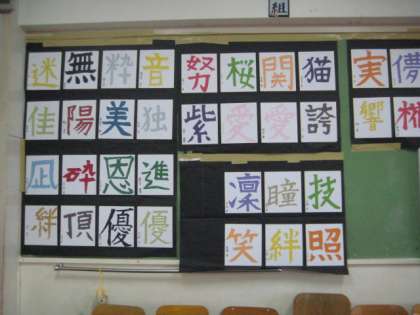 組
迷 無 粋 音
佳 陽 美 独
凪 砕 恩 進
絆 頂 優 優
努 桜 関 猫
紫 愛 愛 誇
凜 瞳 技
笑 絆 照
実
響